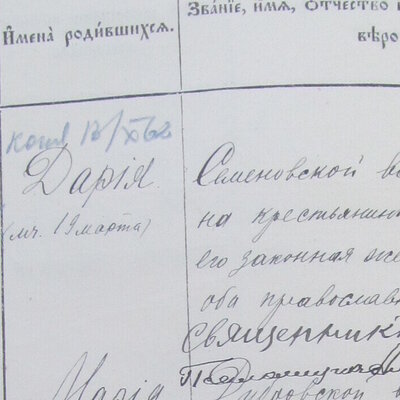 Имена родившихся.
Званіе, имя, отчество и
вѣро
копия 12/XI 62
Дарія
(мч. 19 марта)
Семеновской во
на крестьянин
его законная же
оба православн
священник
Марія
Дубровской в